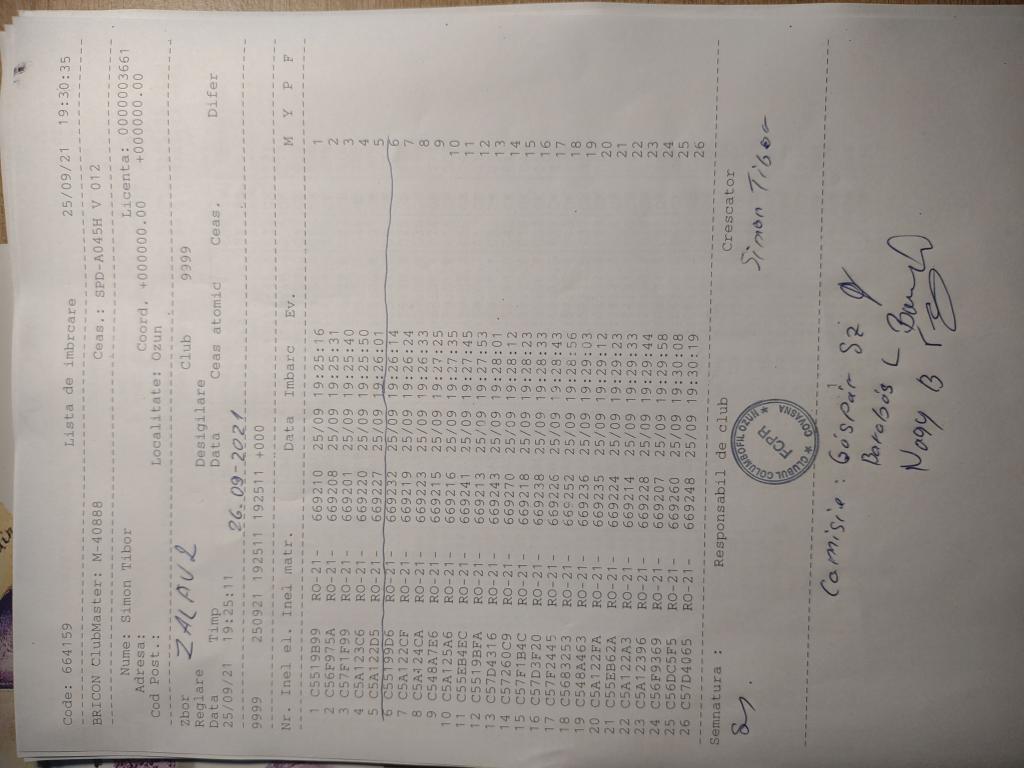 Code: 664159 Lista de imbrcare 25/09/21 19:30:35
BRICON ClubMaster: M-40888 Ceas.: SPD-A045H V 012
Nume: Simon Tibor Licenta: 0000003661
Adresa: Coord. +000000.00 +000000.00
Cod Post.: Localitate: Ozun
Zbor ZALAU 2 Club 9999
Reglare Desigilare
Data Timp Data Ceas atomic Ceas. Difer
25/09/21 19:25:11 26.09-2021
9999 250921 192511 192511 +000
Nr. Inel el. Inel matr. Data Imbarc Ev. M Y P F
1 C5519B99 RO-21- 669210 25/09 19:25:16 1
2 C56F975A RO-21- 669208 25/09 19:25:31 2
3 C57F1F99 RO-21- 669201 25/09 19:25:40 3
4 C5A123C6 RO-21- 669220 25/09 19:25:50 4
5 C5A122D5 RO-21- 669227 25/09 19:26:01 5
6 C55199D6 RO-21- 669232 25/09 19:26:14 6
7 C5A122CF RO-21- 669219 25/09 19:26:24 7
8 C5A124CA RO-21- 669223 25/09 19:26:33 8
9 C548A7E6 RO-21- 669215 25/09 19:27:25 9
10 C5A125A6 RO-21- 669216 25/09 19:27:35 10
11 C55EB4EC RO-21- 669241 25/09 19:27:45 11
12 C5519BFA RO-21- 669213 25/09 19:27:53 12
13 C57D4316 RO-21- 669243 25/09 19:28:01 13
14 C57260C9 RO-21- 669270 25/09 19:28:12 14
15 C57F1B4C RO-21- 669218 25/09 19:28:23 15
16 C57D3F20 RO-21- 669238 25/09 19:28:33 16
17 C57F2445 RO-21- 669226 25/09 19:28:43 17
18 C5683253 RO-21- 669252 25/09 19:28:56 18
19 C548A463 RO-21- 669236 25/09 19:29:03 19
20 C5A122FA RO-21- 669235 25/09 19:29:12 20
21 C55EB62A RO-21- 669224 25/09 19:29:23 21
22 C5A122A3 RO-21- 669214 25/09 19:29:33 22
23 C5A12396 RO-21- 669228 25/09 19:29:44 23
24 C56F9369 RO-21- 669207 25/09 19:29:58 24
25 C56DC5F5 RO-21- 669260 25/09 19:30:08 25
26 C57D4065 RO-21- 669248 25/09 19:30:19 26
Semnatura : Responsabil de club Crescator
CLUBUL COLUMBOFIL OZUN
FCPR
COVASNA
Simon Tibor
Comisia : Gáspár Sz
Barabás L
Nagy B